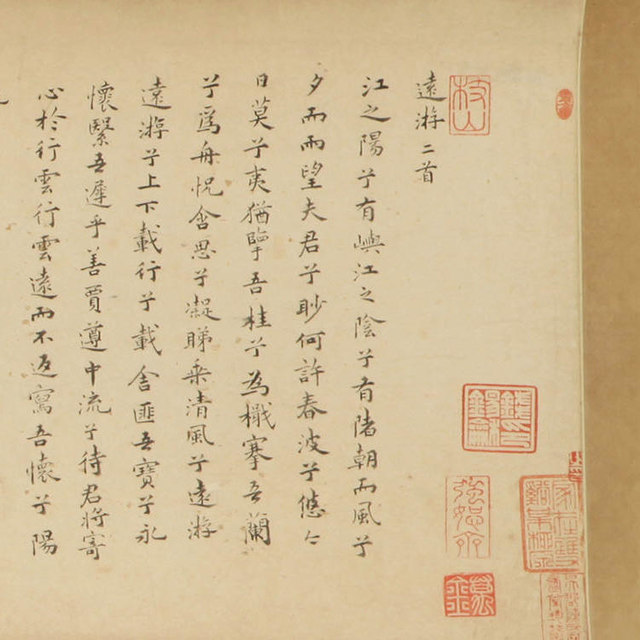 遠游二首
江之陽兮有嶼江之陰兮有渚朝而風兮
夕而雨望夫君兮眇何許春波兮悠々
日莫兮夷猶擥吾桂兮為檝搴吾蘭
兮為舟怳含思兮凝睇乘清風兮遠游
遠游兮上下載行兮載舍匪吾寶兮永
懷繄吾遲乎善賈遵中流兮待君將寄
心於行雲行雲遠而不返寫吾懷兮陽
枝山